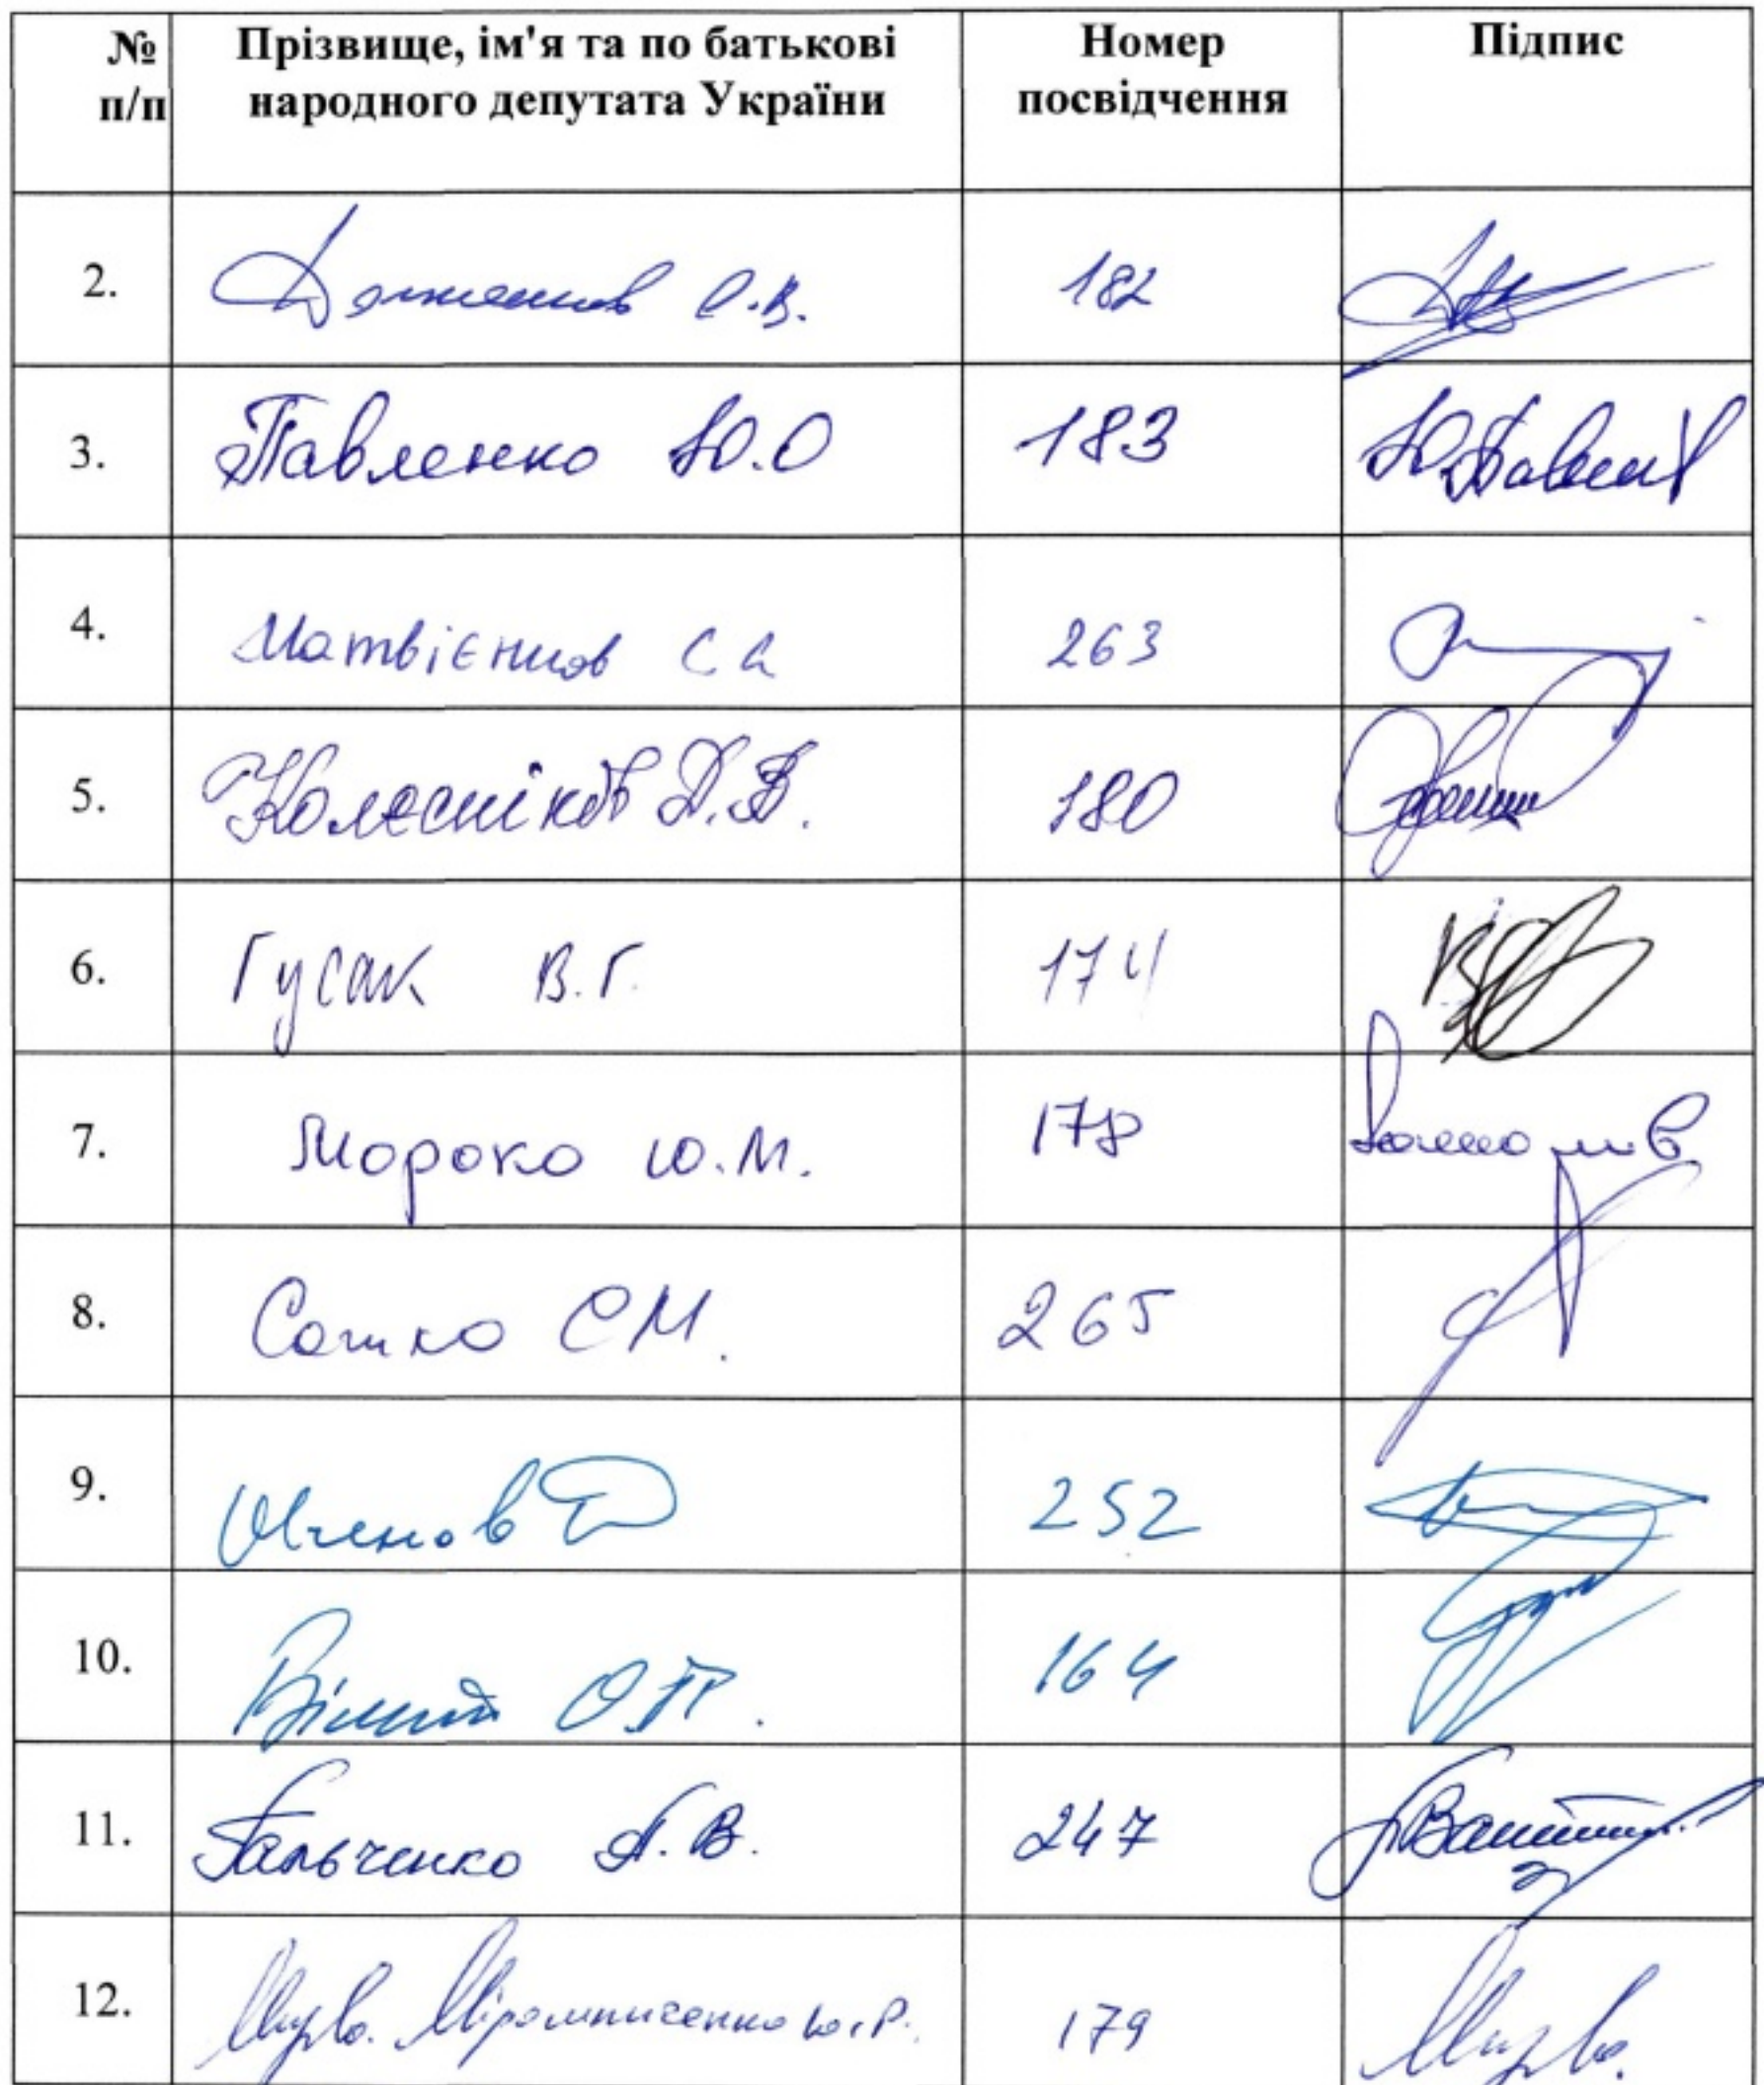 № п/п Прізвище, ім'я та по батькові народного депутата України Номер посвідчення Підпис
2. Долженков О.В. 182
3. Павленко Ю.О 183
4. Матвієнков С А 263
5. Колесніков Д.В. 180
6. Гусак В.Г. 174
7. Мороко Ю.М. 178
8. Сошко С М. 265
9. 252
10. Білий О.П. 164
11. Гальченко А.В. 247
12. Мірошниченко Ю.Р. 179